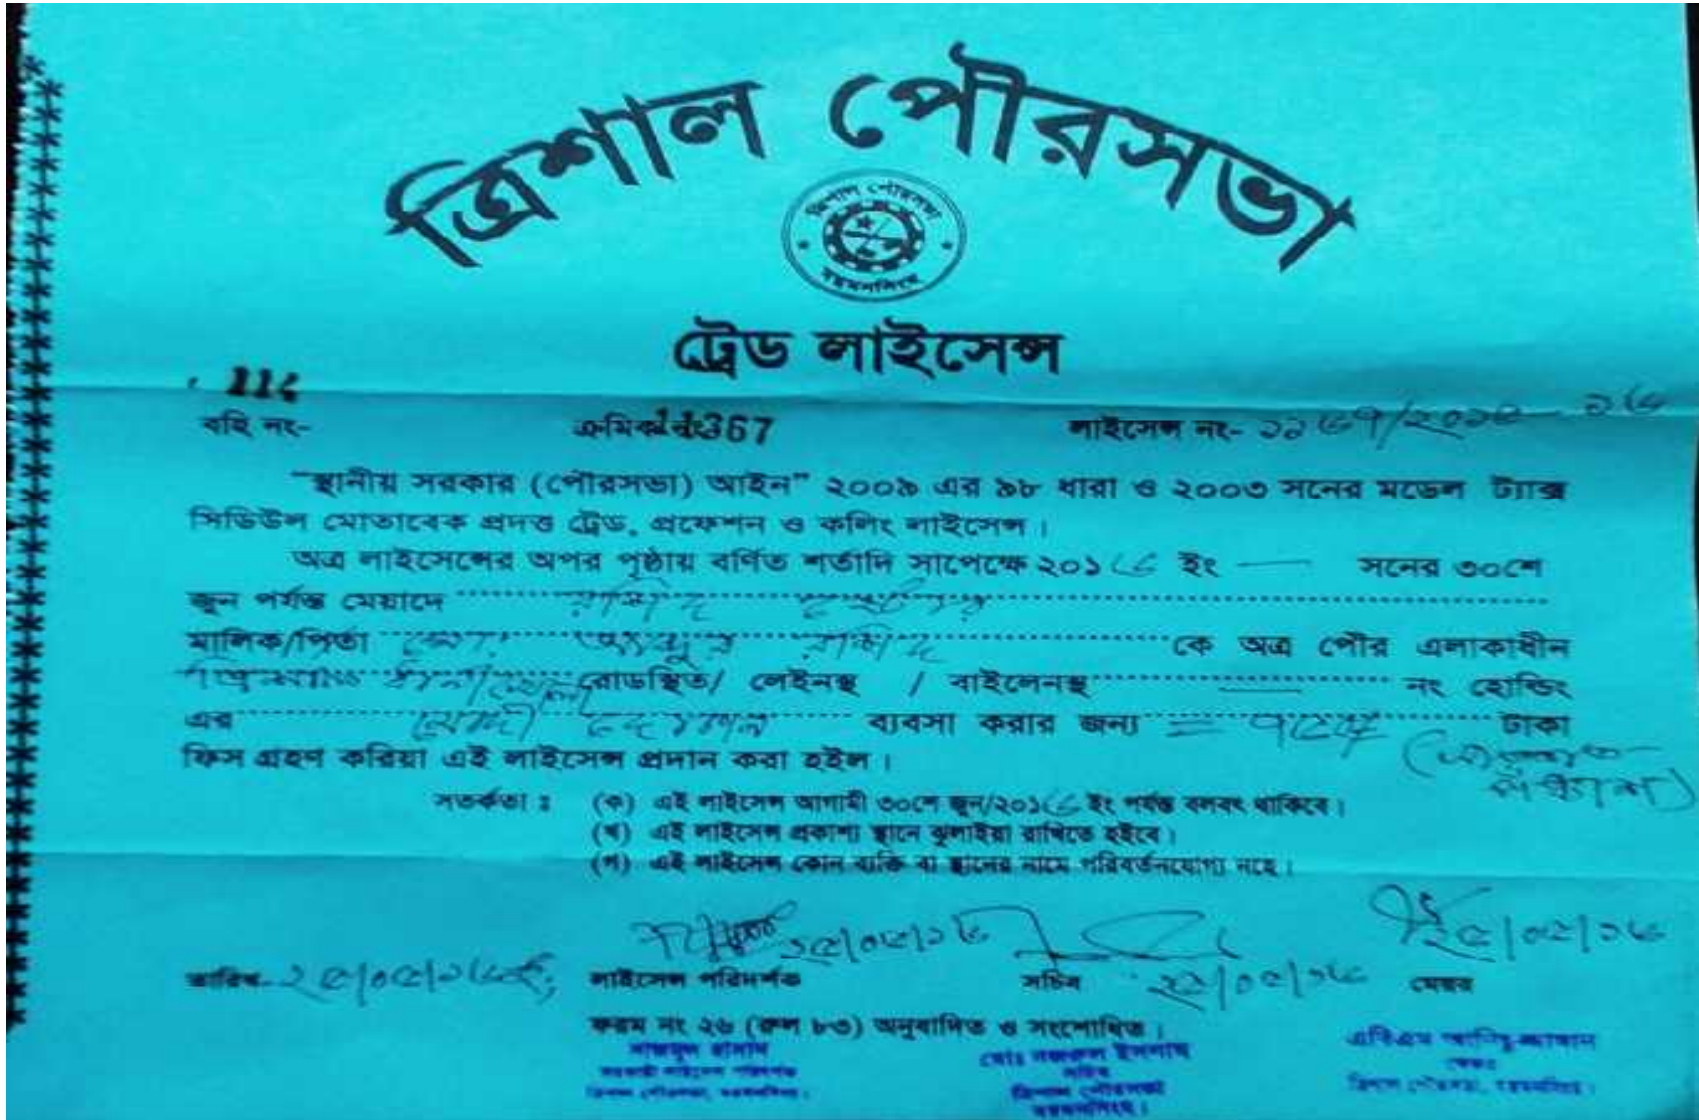 ত্রিশাল পৌরসভা
ত্রিশাল পৌরসভা
ময়মনসিংহ
ট্রেড লাইসেন্স
বহি নং-
ক্রমিক নং 11367
লাইসেন্স নং- ১১৩৬৭/২০১৫-১৬
"স্থানীয় সরকার (পৌরসভা) আইন" ২০০৯ এর ৯৮ ধারা ও ২০০৩ সনের মডেল ট্যাক্স
সিডিউল মোতাবেক প্রদত্ত ট্রেড, প্রফেশন ও কলিং লাইসেন্স।
অত্র লাইসেন্সের অপর পৃষ্ঠায় বর্ণিত শর্তাদি সাপেক্ষে ২০১৬ ইং — সনের ৩০শে
জুন পর্যন্ত মেয়াদে রশিদ
মালিক/পিতা মোঃ আব্দুর রশিদ কে অত্র পৌর এলাকাধীন
রোডস্থিত/ লেইনস্থ / বাইলেনস্থ — নং হোল্ডিং
এর ব্যবসা করার জন্য টাকা
ফিস গ্রহণ করিয়া এই লাইসেন্স প্রদান করা হইল।
সতর্কতা : (ক) এই লাইসেন্স আগামী ৩০শে জুন/২০১৬ ইং পর্যন্ত বলবৎ থাকিবে।
(খ) এই লাইসেন্স প্রকাশ্য স্থানে ঝুলাইয়া রাখিতে হইবে।
(গ) এই লাইসেন্স কোন ব্যক্তি বা স্থানের নামে পরিবর্তনযোগ্য নহে।
২৫/০৫/১৬ ২৫/০৫/১৬
তারিখ- ২৫/০৫/১৬ইং লাইসেন্স পরিদর্শক সচিব ২৫/০৫/১৬ মেয়র
ফরম নং ২৬ (রুল ৮৩) অনুবাদিত ও সংশোধিত।
মোঃ নজরুল ইসলাম
সচিব
ত্রিশাল পৌরসভা
ময়মনসিংহ।
মেয়র
ত্রিশাল পৌরসভা, ময়মনসিংহ।